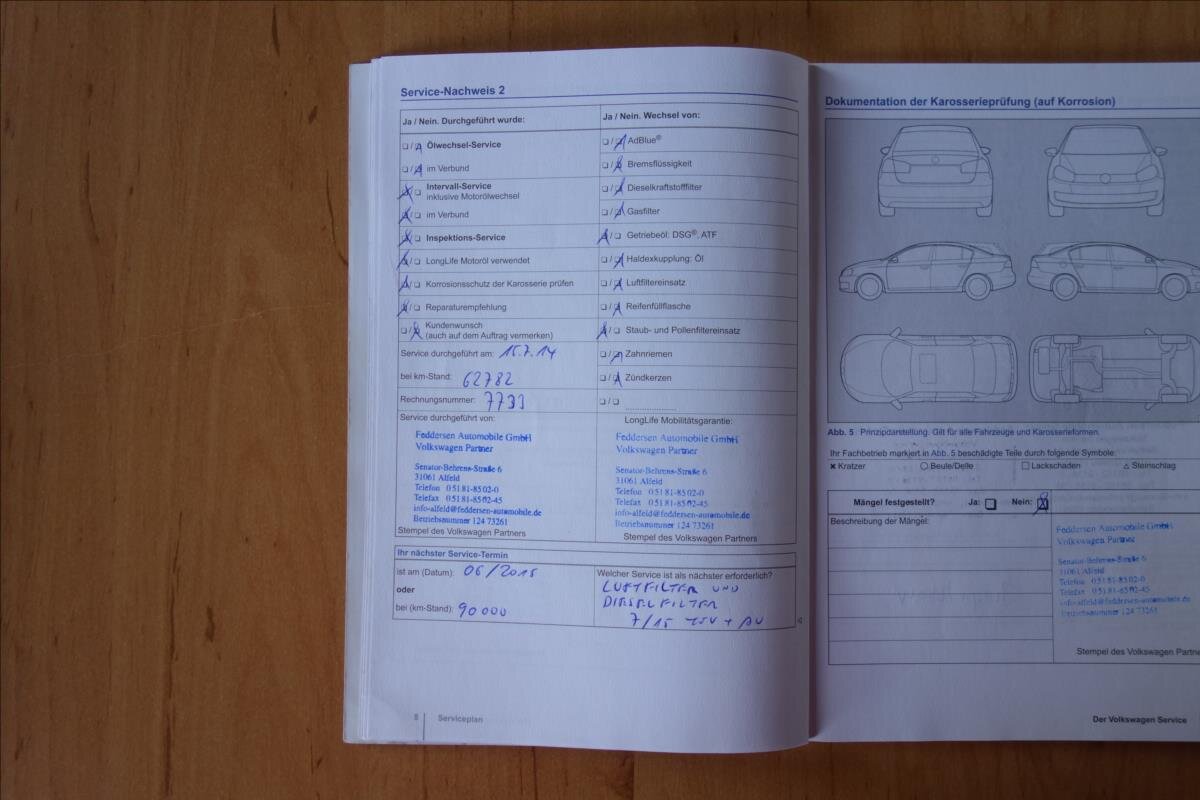 Service-Nachweis 2
Ja / Nein. Durchgeführt wurde:
Ölwechsel-Service
im Verbund
Intervall-Service
inklusive Motorölwechsel
im Verbund
Inspektions-Service
LongLife Motoröl verwendet
Korrosionsschutz der Karosserie prüfen
Reparaturempfehlung
Kundenwunsch
(auch auf dem Auftrag vermerken)
Service durchgeführt am: 15.7.14
bei km-Stand: 62782
Rechnungsnummer: 7733
Service durchgeführt von:
Feddersen Automobile GmbH
Volkswagen Partner
Senator-Behrens-Straße 6
31061 Alfeld
Telefon 05181-8502-0
Telefax 05181-8502-45
info-alfeld@feddersen-automobile.de
Betriebsnummer 124 73261
Stempel des Volkswagen Partners
Ja / Nein. Wechsel von:
AdBlue®
Bremsflüssigkeit
Dieselkraftstofffilter
Gasfilter
Getriebeöl: DSG®, ATF
Haldexkupplung: Öl
Luftfiltereinsatz
Reifenfüllflasche
Staub- und Pollenfiltereinsatz
Zahnriemen
Zündkerzen
LongLife Mobilitätsgarantie:
Feddersen Automobile GmbH
Volkswagen Partner
Senator-Behrens-Straße 6
31061 Alfeld
Telefon 05181-8502-0
Telefax 05181-8502-45
info-alfeld@feddersen-automobile.de
Betriebsnummer 124 73261
Stempel des Volkswagen Partners
Ihr nächster Service-Termin
ist am (Datum): 06/2015
oder
bei (km-Stand): 90000
Welcher Service ist als nächster erforderlich?
LUFTFILTER UND
DIESELFILTER
7/15 TÜV + AU
8 Serviceplan
Dokumentation der Karosserieprüfung (auf Korrosion)
Abb. 5 Prinzipdarstellung. Gilt für alle Fahrzeuge und Karosserieformen.
Ihr Fachbetrieb markiert in Abb. 5 beschädigte Teile durch folgende Symbole:
Kratzer Beule/Delle Lackschaden Steinschlag
Mängel festgestellt? Ja: Nein:
Beschreibung der Mängel:
Feddersen Automobile GmbH
Volkswagen Partner
Senator-Behrens-Straße 6
31061 Alfeld
Telefon 05181-8502-0
Telefax 05181-8502-45
info-alfeld@feddersen-automobile.de
Betriebsnummer 124 73261
Stempel des Volkswagen Partne
Der Volkswagen Service